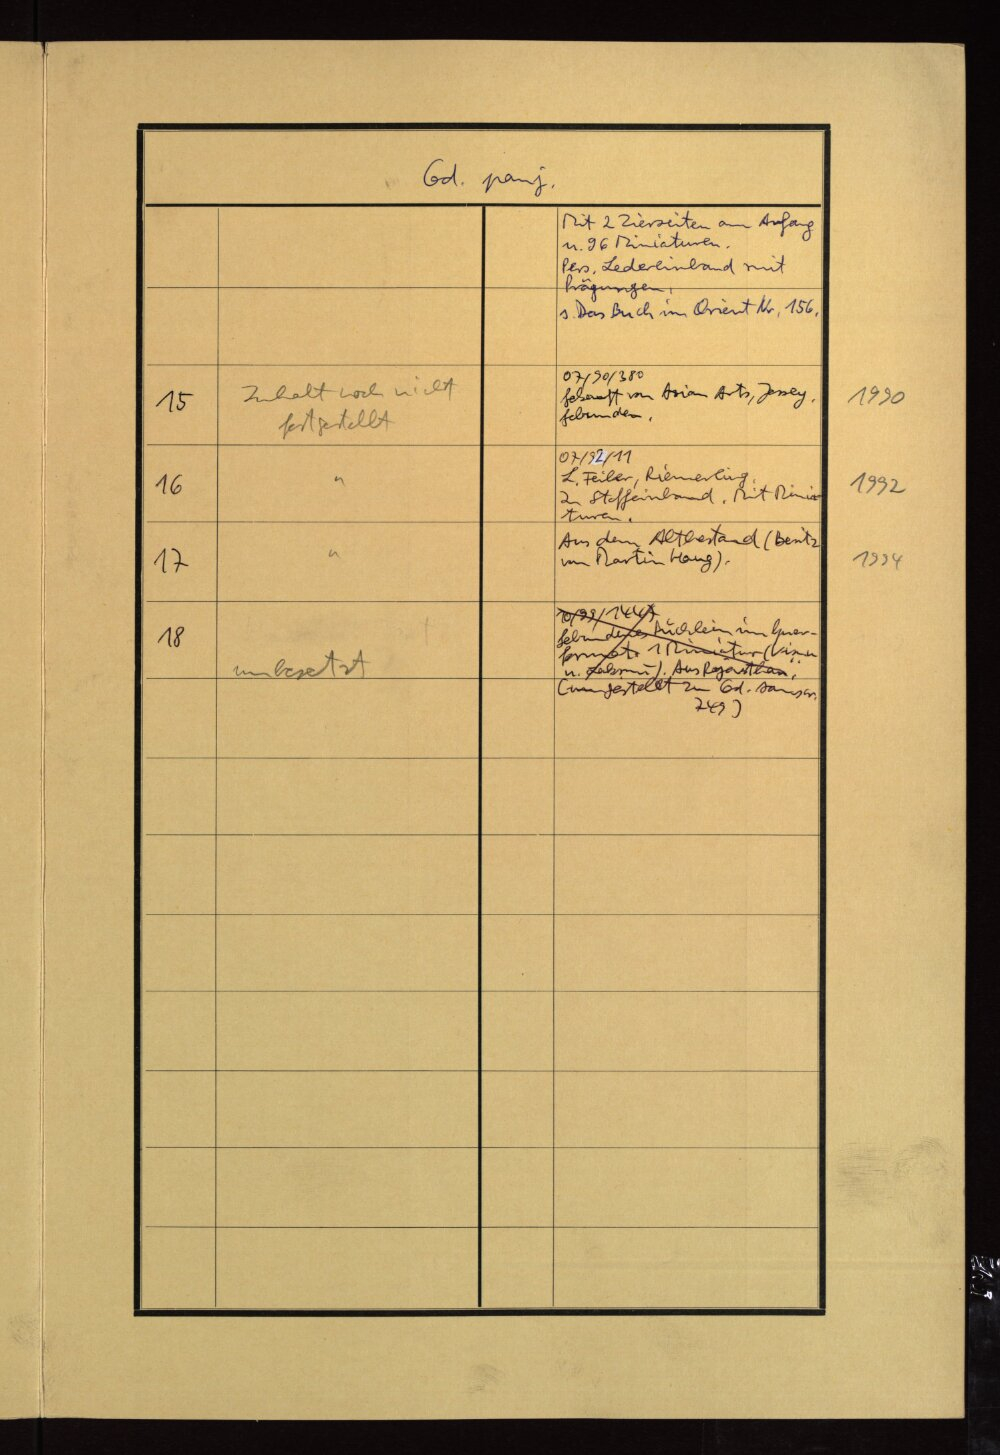 Cod. panj.
Mit 2 Zierseiten am Anfang
u. 96 Miniaturen.
Pers. Ledereinband mit
Prägungen.
s. Das Buch im Orient Nr. 156.
15
Inhalt noch nicht
festgestellt
07/90/380
gekauft von Asian Arts, Jersey.
gebunden.
1990
16
"
07/92/11
L. Feiler, Riemerling.
In Stoffeinband. Mit Minia-
turen.
1992
17
"
Aus dem Altbestand (Besitz
von Martin Haug).
1994
18
unbesetzt
gebundenes Büchlein im Quer-
format. 1 Miniatur (Viṣṇu
u. Lakṣmī). Aus Rajasthan.
(umgestellt zu Cod. sanscr.
749)